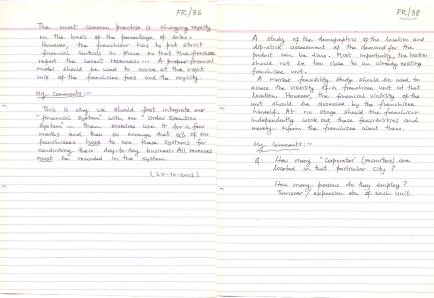 FR/36
The most common practice is charging royalty
on the basis of the percentage of sales.
However, the franchisor has to put strict
financial controls in place so that the franchisee
report the correct revenues.... A proper financial
model should be used to arrive at the right
mix of the franchisee fees and the royalty.
My Comments:-
This is why we should first integrate our
"financial system" with our "Order Execution
System" - then ourselves use it for a few
months and then so arrange that all of our
franchisees have to use these systems for
conducting their day-to-day business. All revenues
must be recorded in the system.
(20-10-2001)
FR/38
A study of the demographics of the location and
dip-stick assessment of the demand for the
product can be done. Most importantly, the location
should not be too close to an already existing
franchisee unit.
A market feasibility study should be used to
assess the viability of a franchise unit at that
location. However, the financial viability of the
unit should be assessed by the franchisee
himself. At no stage should the franchisor
independently work out these feasibilities and
merely inform the franchisee about them.
My Comments:-
Q: How many "Corporates" (recruiters) are
located in that particular city?
How many persons do they employ?
Turnover / expansion etc of each unit.